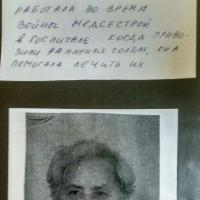 РАБОТАЛА ВО ВРЕМЯ
ВОЙНЫ МЕДСЕСТРОЙ
В ГОСПИТАЛЕ. КОГДА ПРИВО-
ЗИЛИ РАННЕНЫХ СОЛДАТ, ОНА
ПОМОГАЛА ЛЕЧИТЬ ИХ.